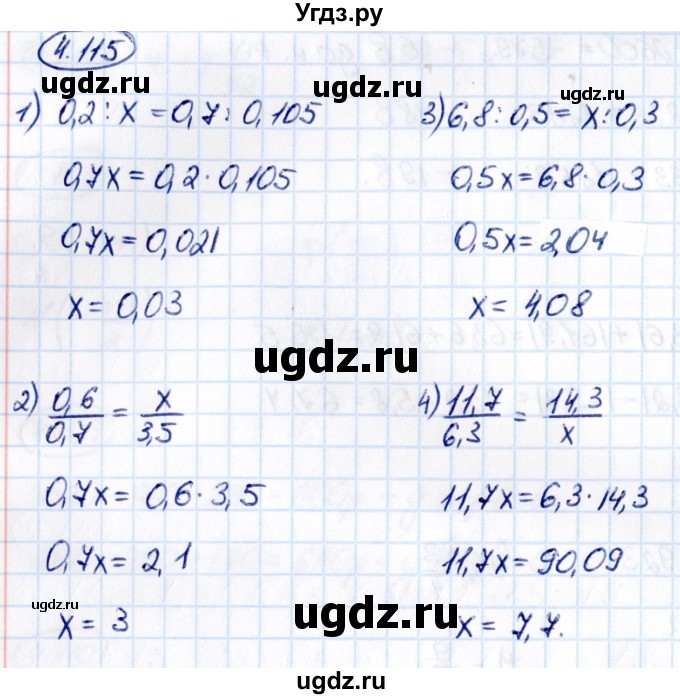 Угдз.ру
4.115
ugdz.ru
ugdz.ru
1) 0,2 : x = 0,7 : 0,105
0,7x = 0,2 · 0,105
0,7x = 0,021
x = 0,03
3) 6,8 : 0,5 = x : 0,3
0,5x = 6,8 · 0,3
0,5x = 2,04
x = 4,08
ugdz.ru
2) 0,6/0,7 = x/3,5
0,7x = 0,6 · 3,5
0,7x = 2,1
x = 3
4) 11,7/6,3 = 14,3/x
11,7x = 6,3 · 14,3
11,7x = 90,09
x = 7,7.
ugdz.ru
ugdz.ru
ugdz.ru
ugdz.ru